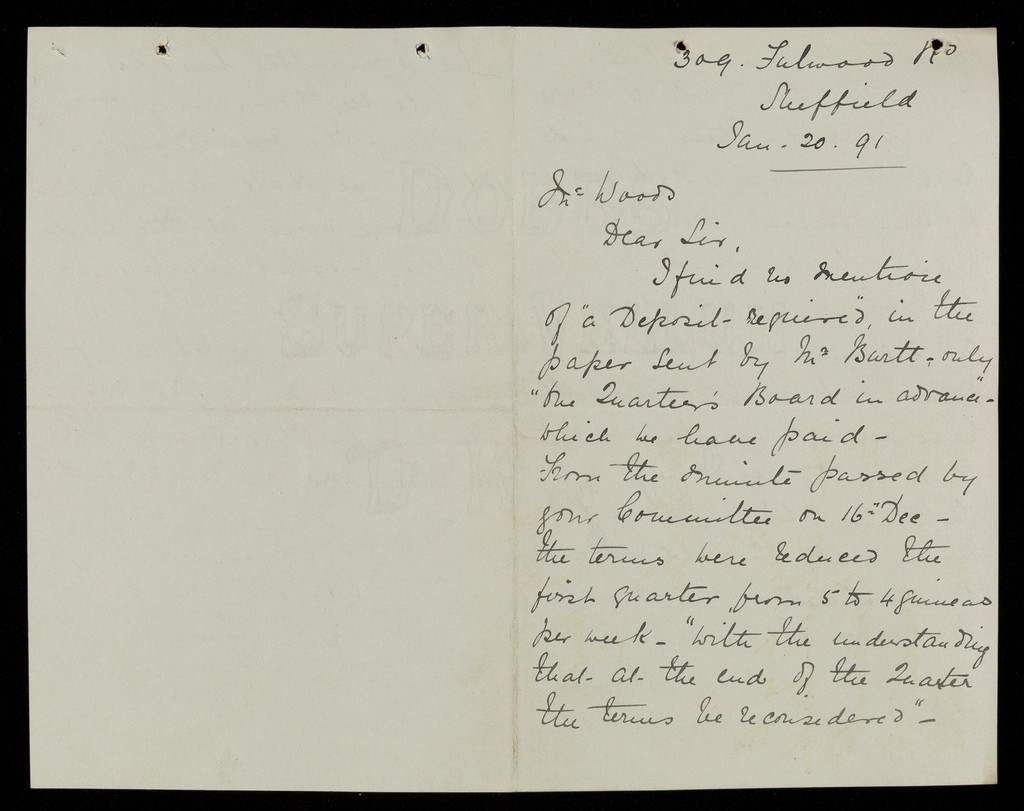 309. Fulwood Rd
Sheffield
Jan. 20. 91
Mr Woods
Dear Sir,
I find no mention
of "a Deposit required", in the
paper sent by Mr Burtt - only
"the Quarter's Board in advance" -
which we have paid -
From the minute passed by
your Committee on 16th Dec -
the terms were reduced the
first quarter, from 5 to 4 guineas
per week - "with the understanding
that at the end of the Quarter
the terms be reconsidered" -